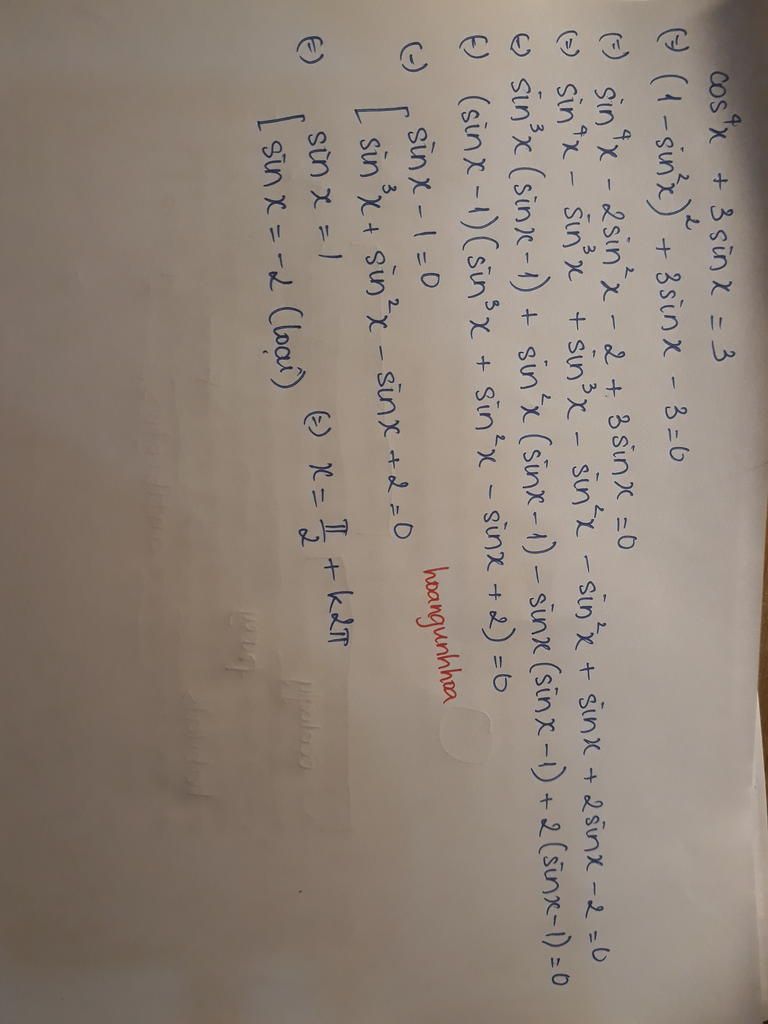 cos⁴x + 3sinx = 3
(=) (1 - sin²x)² + 3sinx - 3 = 0
(=) sin⁴x - 2sin²x - 2 + 3sinx = 0
(=) sin⁴x - sin³x + sin³x - sin²x - sin²x + sinx + 2sinx - 2 = 0
(=) sin³x (sinx - 1) + sin²x (sinx - 1) - sinx (sinx - 1) + 2 (sinx - 1) = 0
(=) (sinx - 1)(sin³x + sin²x - sinx + 2) = 0
(=) [ sinx - 1 = 0
sin³x + sin²x - sinx + 2 = 0
hoangunhhoa
(=) [ sinx = 1 (=) x = π/2 + k2π
sinx = -2 (loại)